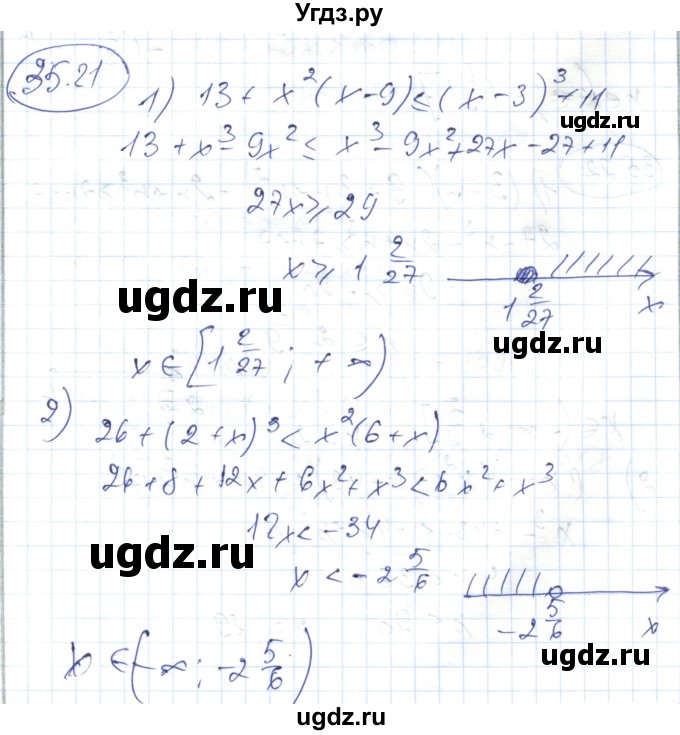 Угдз.ру
35.21
1) 13 + x²(x-9) ≤ (x-3)³ + 11
13 + x³ - 9x² ≤ x³ - 9x² + 27x - 27 + 11
27x ≥ 29
x ≥ 1 2/27
1 2/27 x
ugdz.ru
ugdz.ru
x ∈ [1 2/27 ; +∞)
2) 26 + (2+x)³ < x²(6+x)
26 + 8 + 12x + 6x² + x³ < 6x² + x³
12x < -34
ugdz.ru
x < -2 5/6
-2 5/6 x
x ∈ (-∞ ; -2 5/6)
ugdz.ru
ugdz.ru